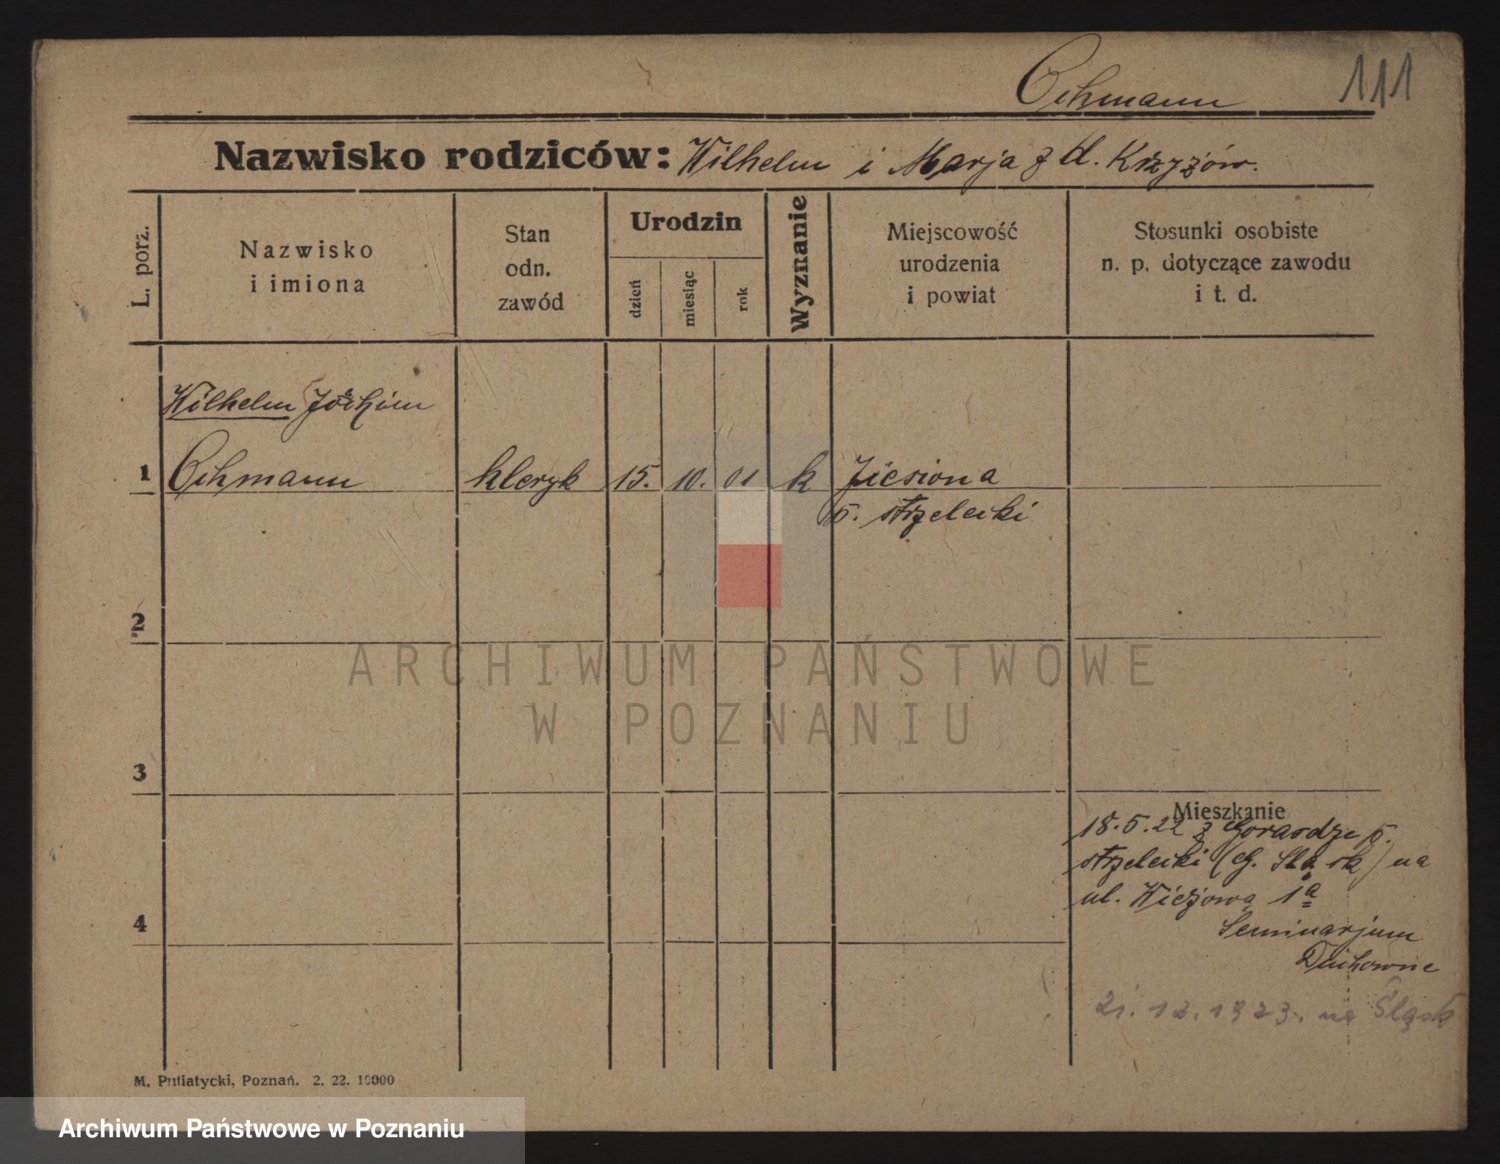 Ochmann 111
Nazwisko rodziców: Wilhelm i Marja z d. Krzyżów.
L. porz.
Nazwisko
i imiona
Stan
odn.
zawód
Urodzin
dzień
miesiąc
rok
Wyznanie
Miejscowość
urodzenia
i powiat
Stosunki osobiste
n. p. dotyczące zawodu
i t. d.
Wilhelm Jochim
1 Ochmann kleryk 15. 10. 01 k Jiesiona
p. strzelecki
2
ARCHIWUM PAŃSTWOWE
W POZNANIU
3
Mieszkanie
18.5.22 z Gorasdze p.
strzelecki (G. Śląsk) na
ul. Wieżową 1a
4
Seminarjum
Duchowne
21.12.1923. na Śląsk
M. Putiatycki, Poznań. 2. 22. 10000
Archiwum Państwowe w Poznaniu